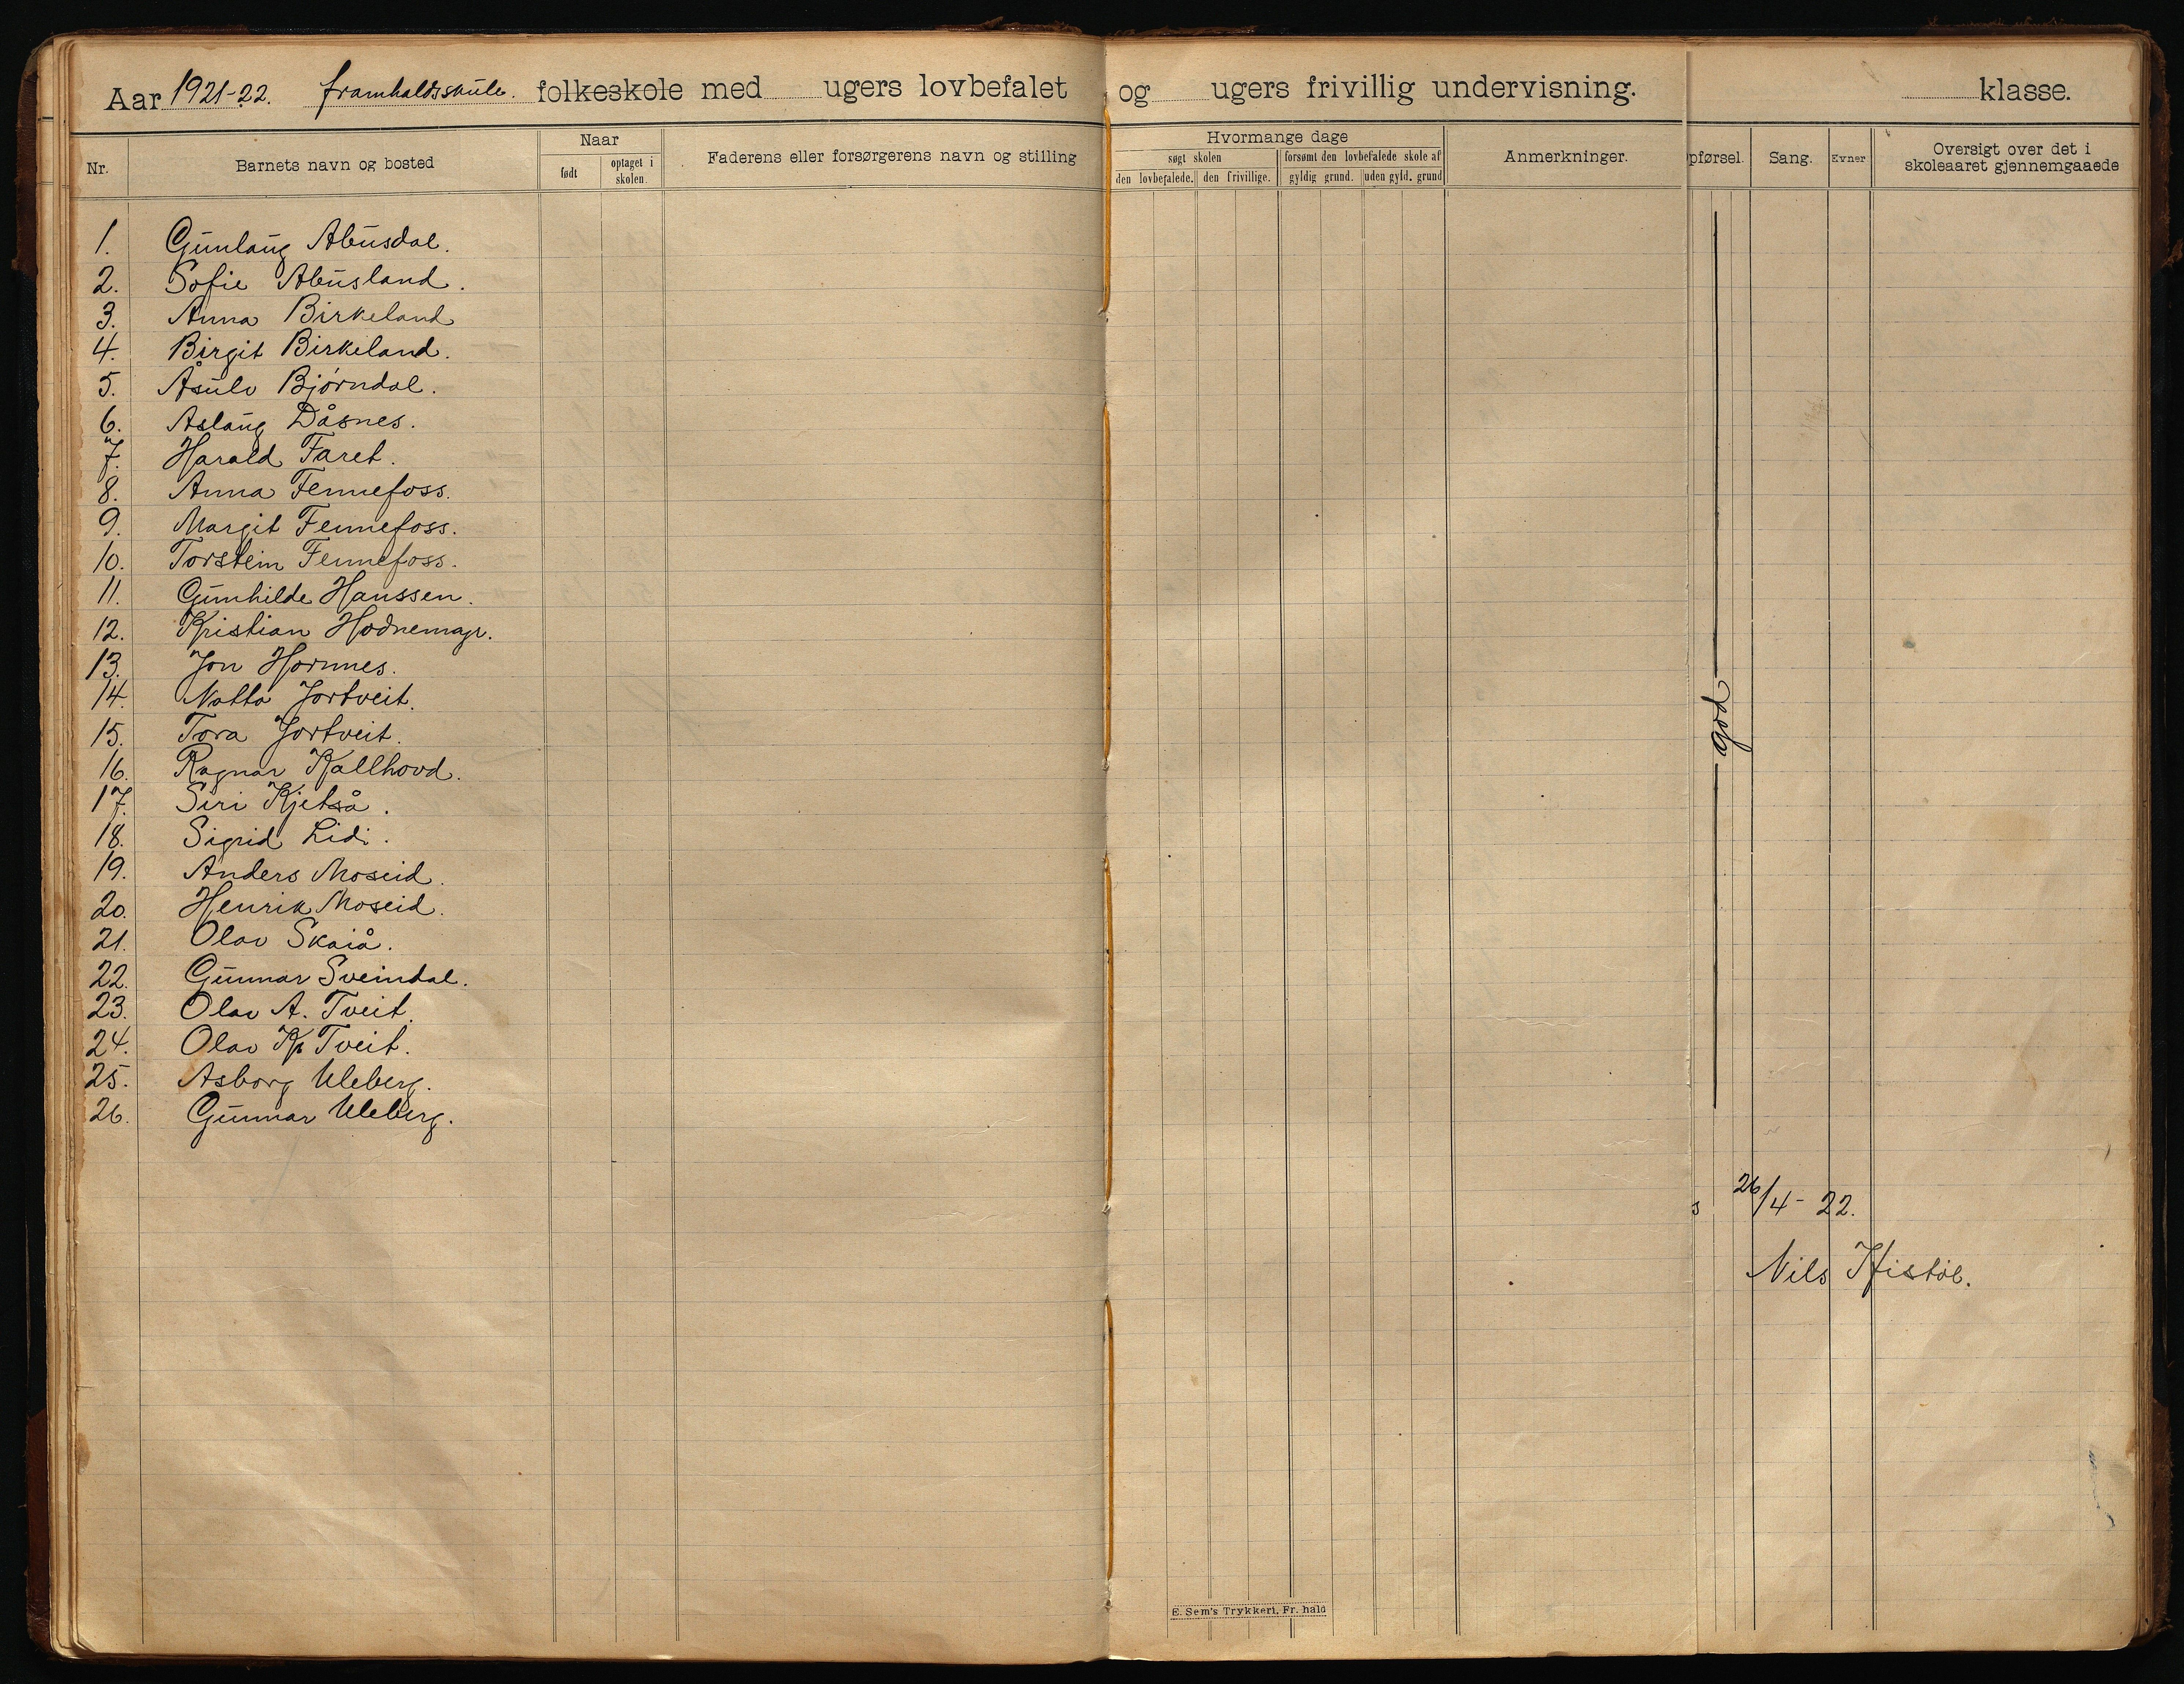 Aar 1921-22. framhaldsskule. folkeskole med ugers lovbefalet og ugers frivillig undervisning. klasse.
Nr. Barnets navn og bosted Naar født optaget i skolen. Faderens eller forsørgerens navn og stilling Hvormange dage søgt skolen den lovbefalede. den frivillige. forsømt den lovbefalede skole af gyldig grund. uden gyld. grund Anmerkninger. pførsel. Sang. Evner Oversigt over det i skoleaaret gjennemgaaede
1. Gunlaug Abusdal.
2. Sofie Abusland.
3. Anna Birkeland
4. Birgit Birkeland.
5. Åsulv Bjørndal.
6. Aslaug Dåsnes.
7. Harald Faret.
8. Anna Fennefoss.
9. Margit Fennefoss.
10. Torstein Fennefoss.
11. Gunhilde Hanssen.
12. Kristian Hodnemyr.
13. Jon Hornnes.
14. Natta Jortveit.
15. Tora Jortveit.
16. Ragnar Kallhovd.
17. Siri Kjetså.
18. Sigrid Lidi.
19. Anders Moseid.
20. Henrik Moseid.
21. Olav Skaiå.
22. Gunnar Sveindal.
23. Olav A. Tveit.
24. Olav K. Tveit.
25. Asborg Uleberg.
26. Gunnar Uleberg.
god
s 26/4-22.
Nils Histøl.
E. Sem's Trykkeri, Fr. hald